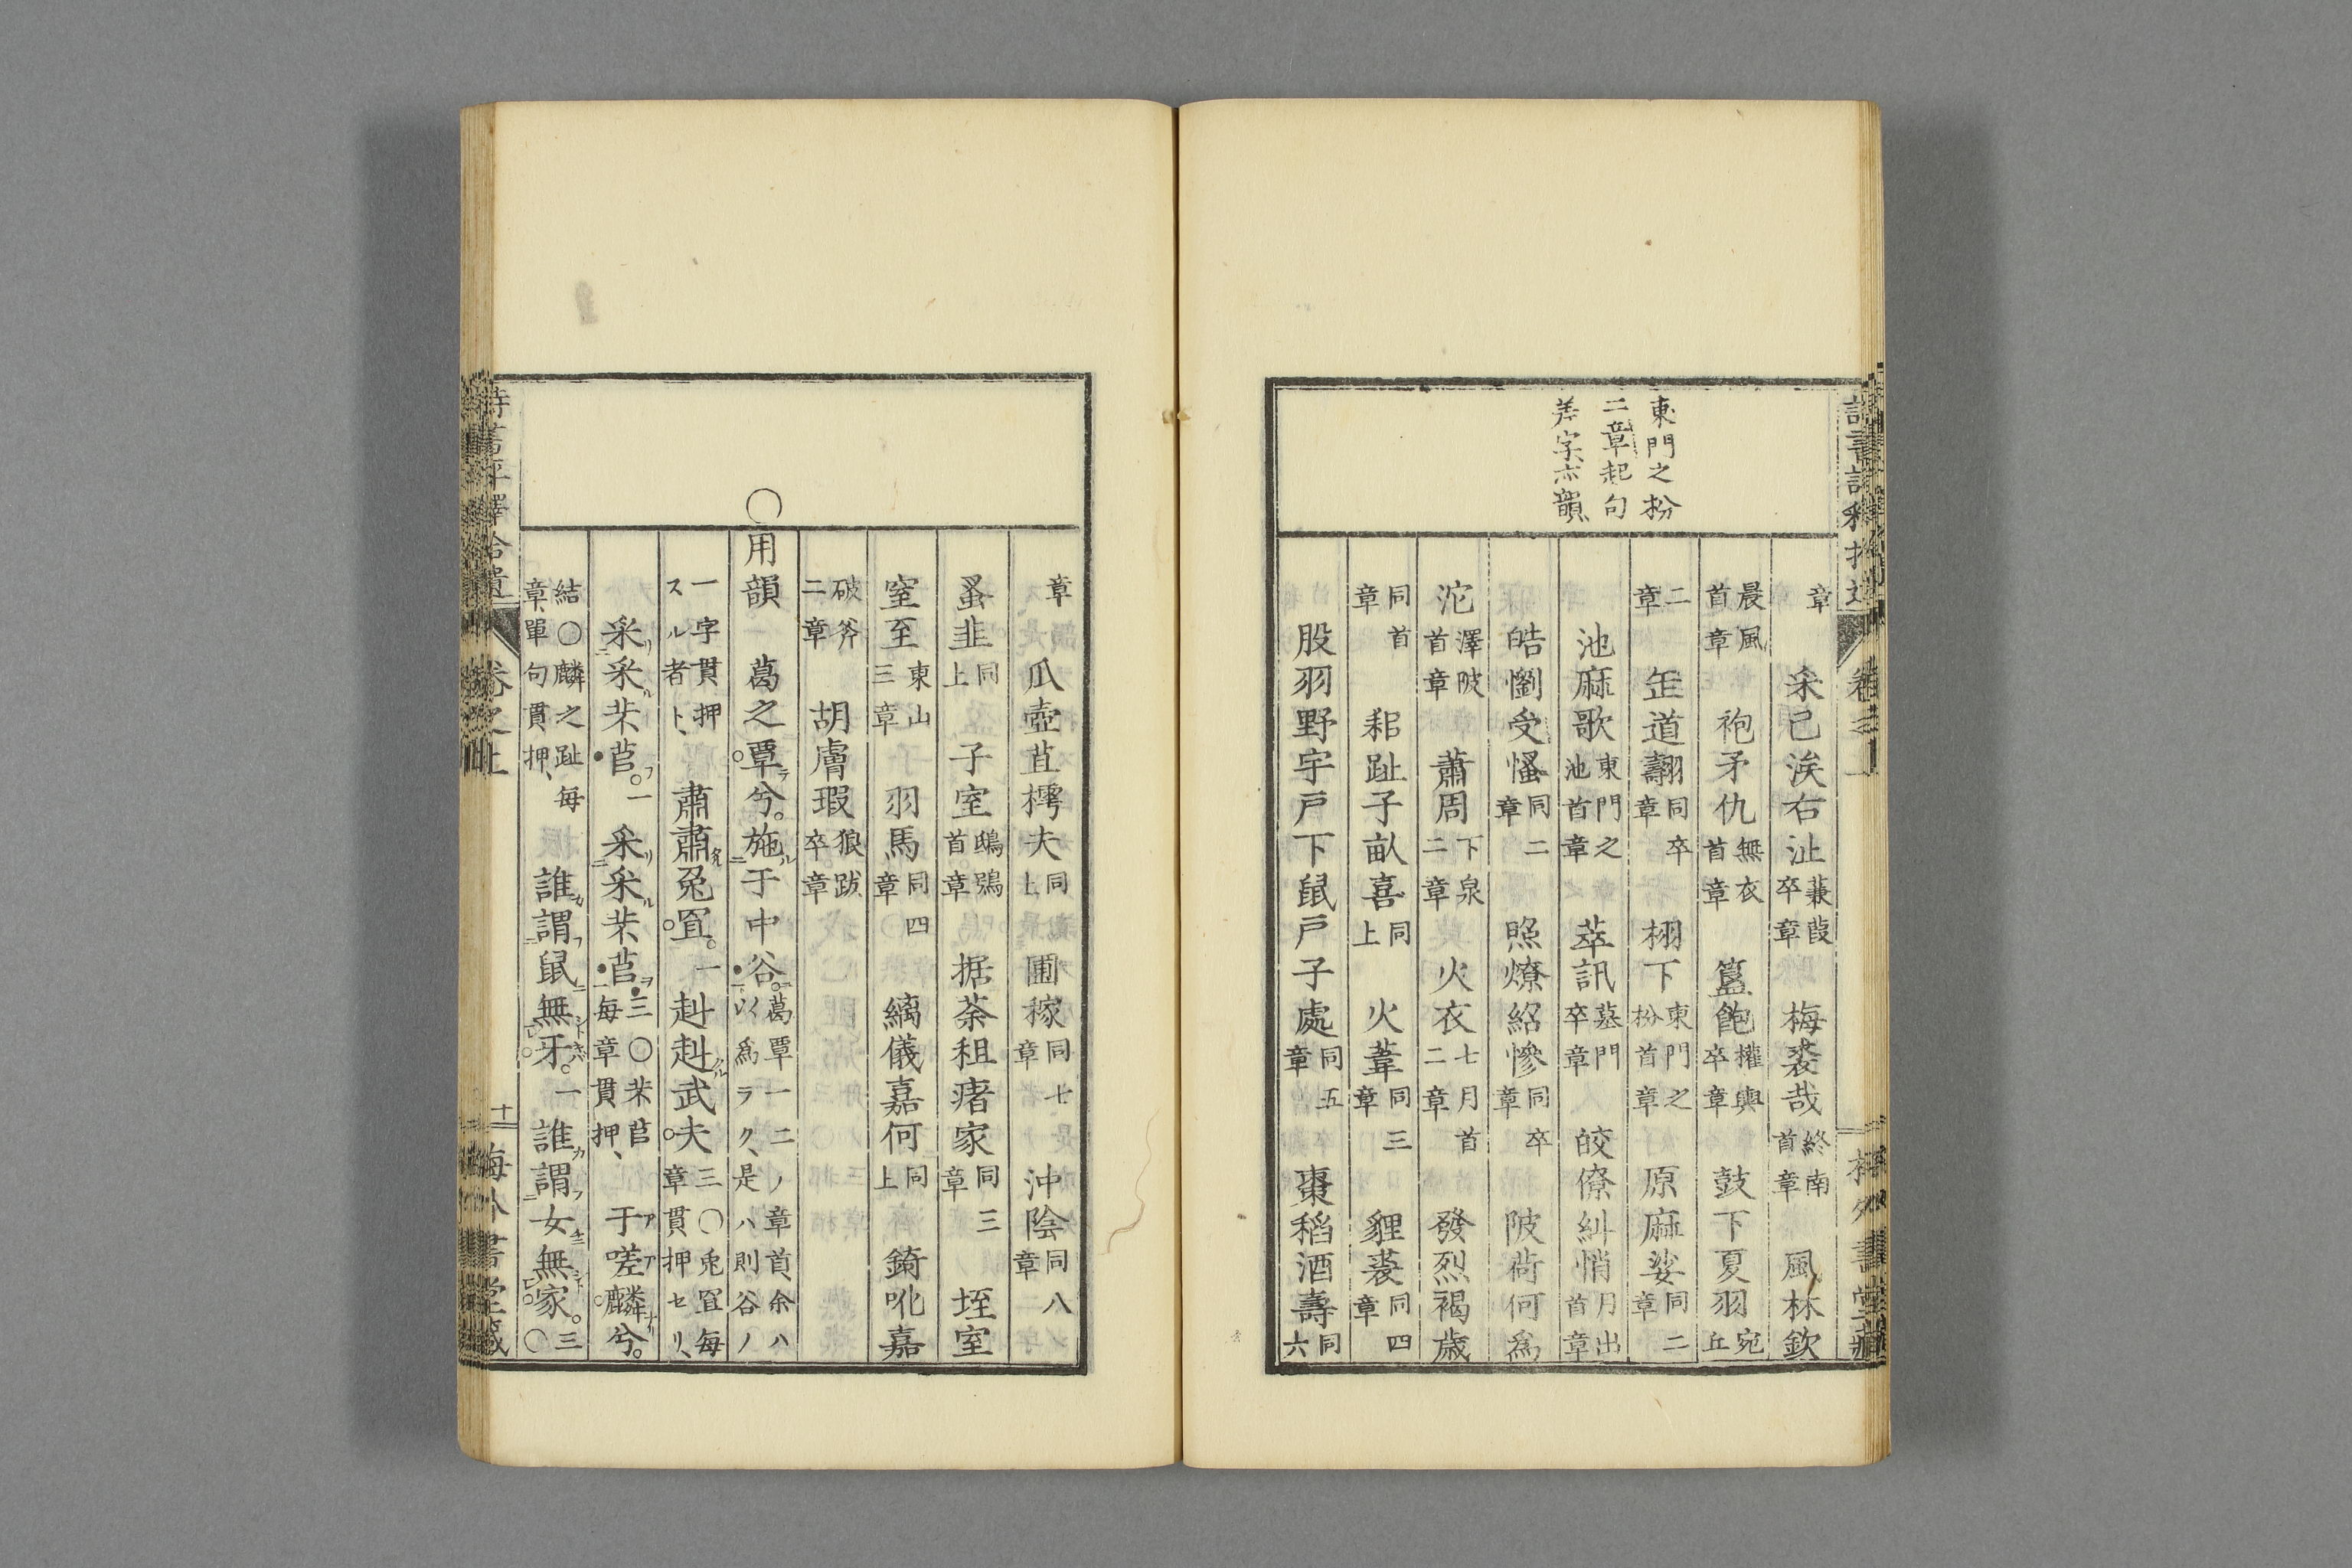 東門之枌
二章起句
差字亦韻
章 采已涘右沚 蒹葭卒章 梅裘哉 終南首章 風林欽
晨風首章 袍矛仇 無衣首章 簋飽 權輿卒章 鼓下夏羽 宛丘
二章 缶道翿 同卒章 栩下 東門之枌首章 原麻娑 同二章
池麻歌 東門之池首章 萃訊 墓門卒章 皎僚糾悄 月出首章
皓懰受慅 同二章 照燎紹慘 同卒章 陂荷何爲
沱 澤陂首章 蕭周 下泉二章 火衣 七月首二章 發烈褐歳
同首章 耜趾子畝喜 同上 火葦 同三章 貍裘 同四章
股羽野宇戸下鼠戸子處 同五章 棗稻酒壽 同六
章 瓜壺苴樗夫 同上 圃稼 同七章 沖陰 同八章
蚤韭 同上 子室 鴟鴞首章 据荼租瘏家 同三章 垤室
窒至 東山三章 羽馬 同四章 縭儀嘉何 同上 錡吪嘉
破斧二章 胡膚瑕 狼跋卒章
○用韻 葛之覃兮。施ル于中谷。 葛覃一二ノ章首、余ハ以爲ラク、是ハ則谷ノ
一字貫押スル者ト、 肅肅兔罝。一 赳赳武夫 三○兔罝毎章貫押セリ、
采采芣苢。一 采采芣苢 三○芣苢毎章貫押、 于嗟麟兮。
結○麟之趾毎章單句貫押、 誰謂鼠無牙。一 誰謂女無家。三○
卷之上
十二
梅外書堂藏